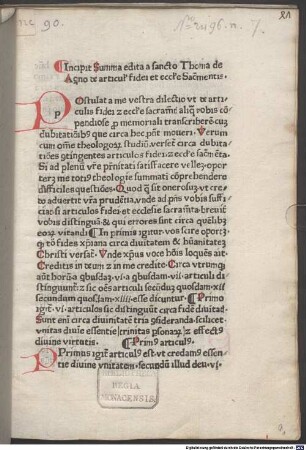 90.
21
¶Incipit Summa edita a sancto Thoma de
Aqno de articul' fidei et eccl'e Sacmentis.
POstulat a me vestra dilectio vt de arti
culis fidei z eccl'e sacramētis aliq̄ vobis cō
pendiose p memoriali transcriberē cū
dubitatiōib9 que circa hec pn̄t moueri. Verum
cum om̄e theologoꝝ studiū verset' circa dubita
tiōes ꝯtingentes articulos fidei z eccl'e sacm̄ta.
Si ad plenū vr̄e petitioni satisfacere vellē oper
teret me totiꝰ theologie summati cōprehendere
difficiles questiōes. Quod q̄ sit onerosū vr̄e
do aduertit vr̄a prudētia. vnde ad pn̄s vobis suffi
ciat si articulos fidei et ecclesie sacram̄ta breuit'
vobis distinguā et qui errores sint circa quēlibz
eoꝝ vitandi ¶In primis igitur vos scire oportz
q̄ to fides xp̄iana circa diuinitatem z humanitatē
Christi versat'. Vnde xp̄us voce Iohīs loquēs ait
Creditis in deum z in me credite. Circa vtrumqꝫ
aūt horum a quibusdā vi. a quibusdā vii. articuli di
stinguunt' z sic oēs articuli secūdū quosdam xii
secundum quosdam xiiii. esse dicuntur. ¶Primo
igit' vi. articulos sic distinguūt circa fidē diuinitatis
Sunt em̄ circa diuinitatē tria ꝯsiderāda. scilicet
vnitas diuine essentie trinitas psonaꝝ z effectꝰ
diuine virtutis. ¶Primꝰ articulꝰ.
PRimus igit' articulus est vt credamꝰ essen
tie diuine vnitatem. secundū illud deu. vi.
REGIA
MONACENSIS.